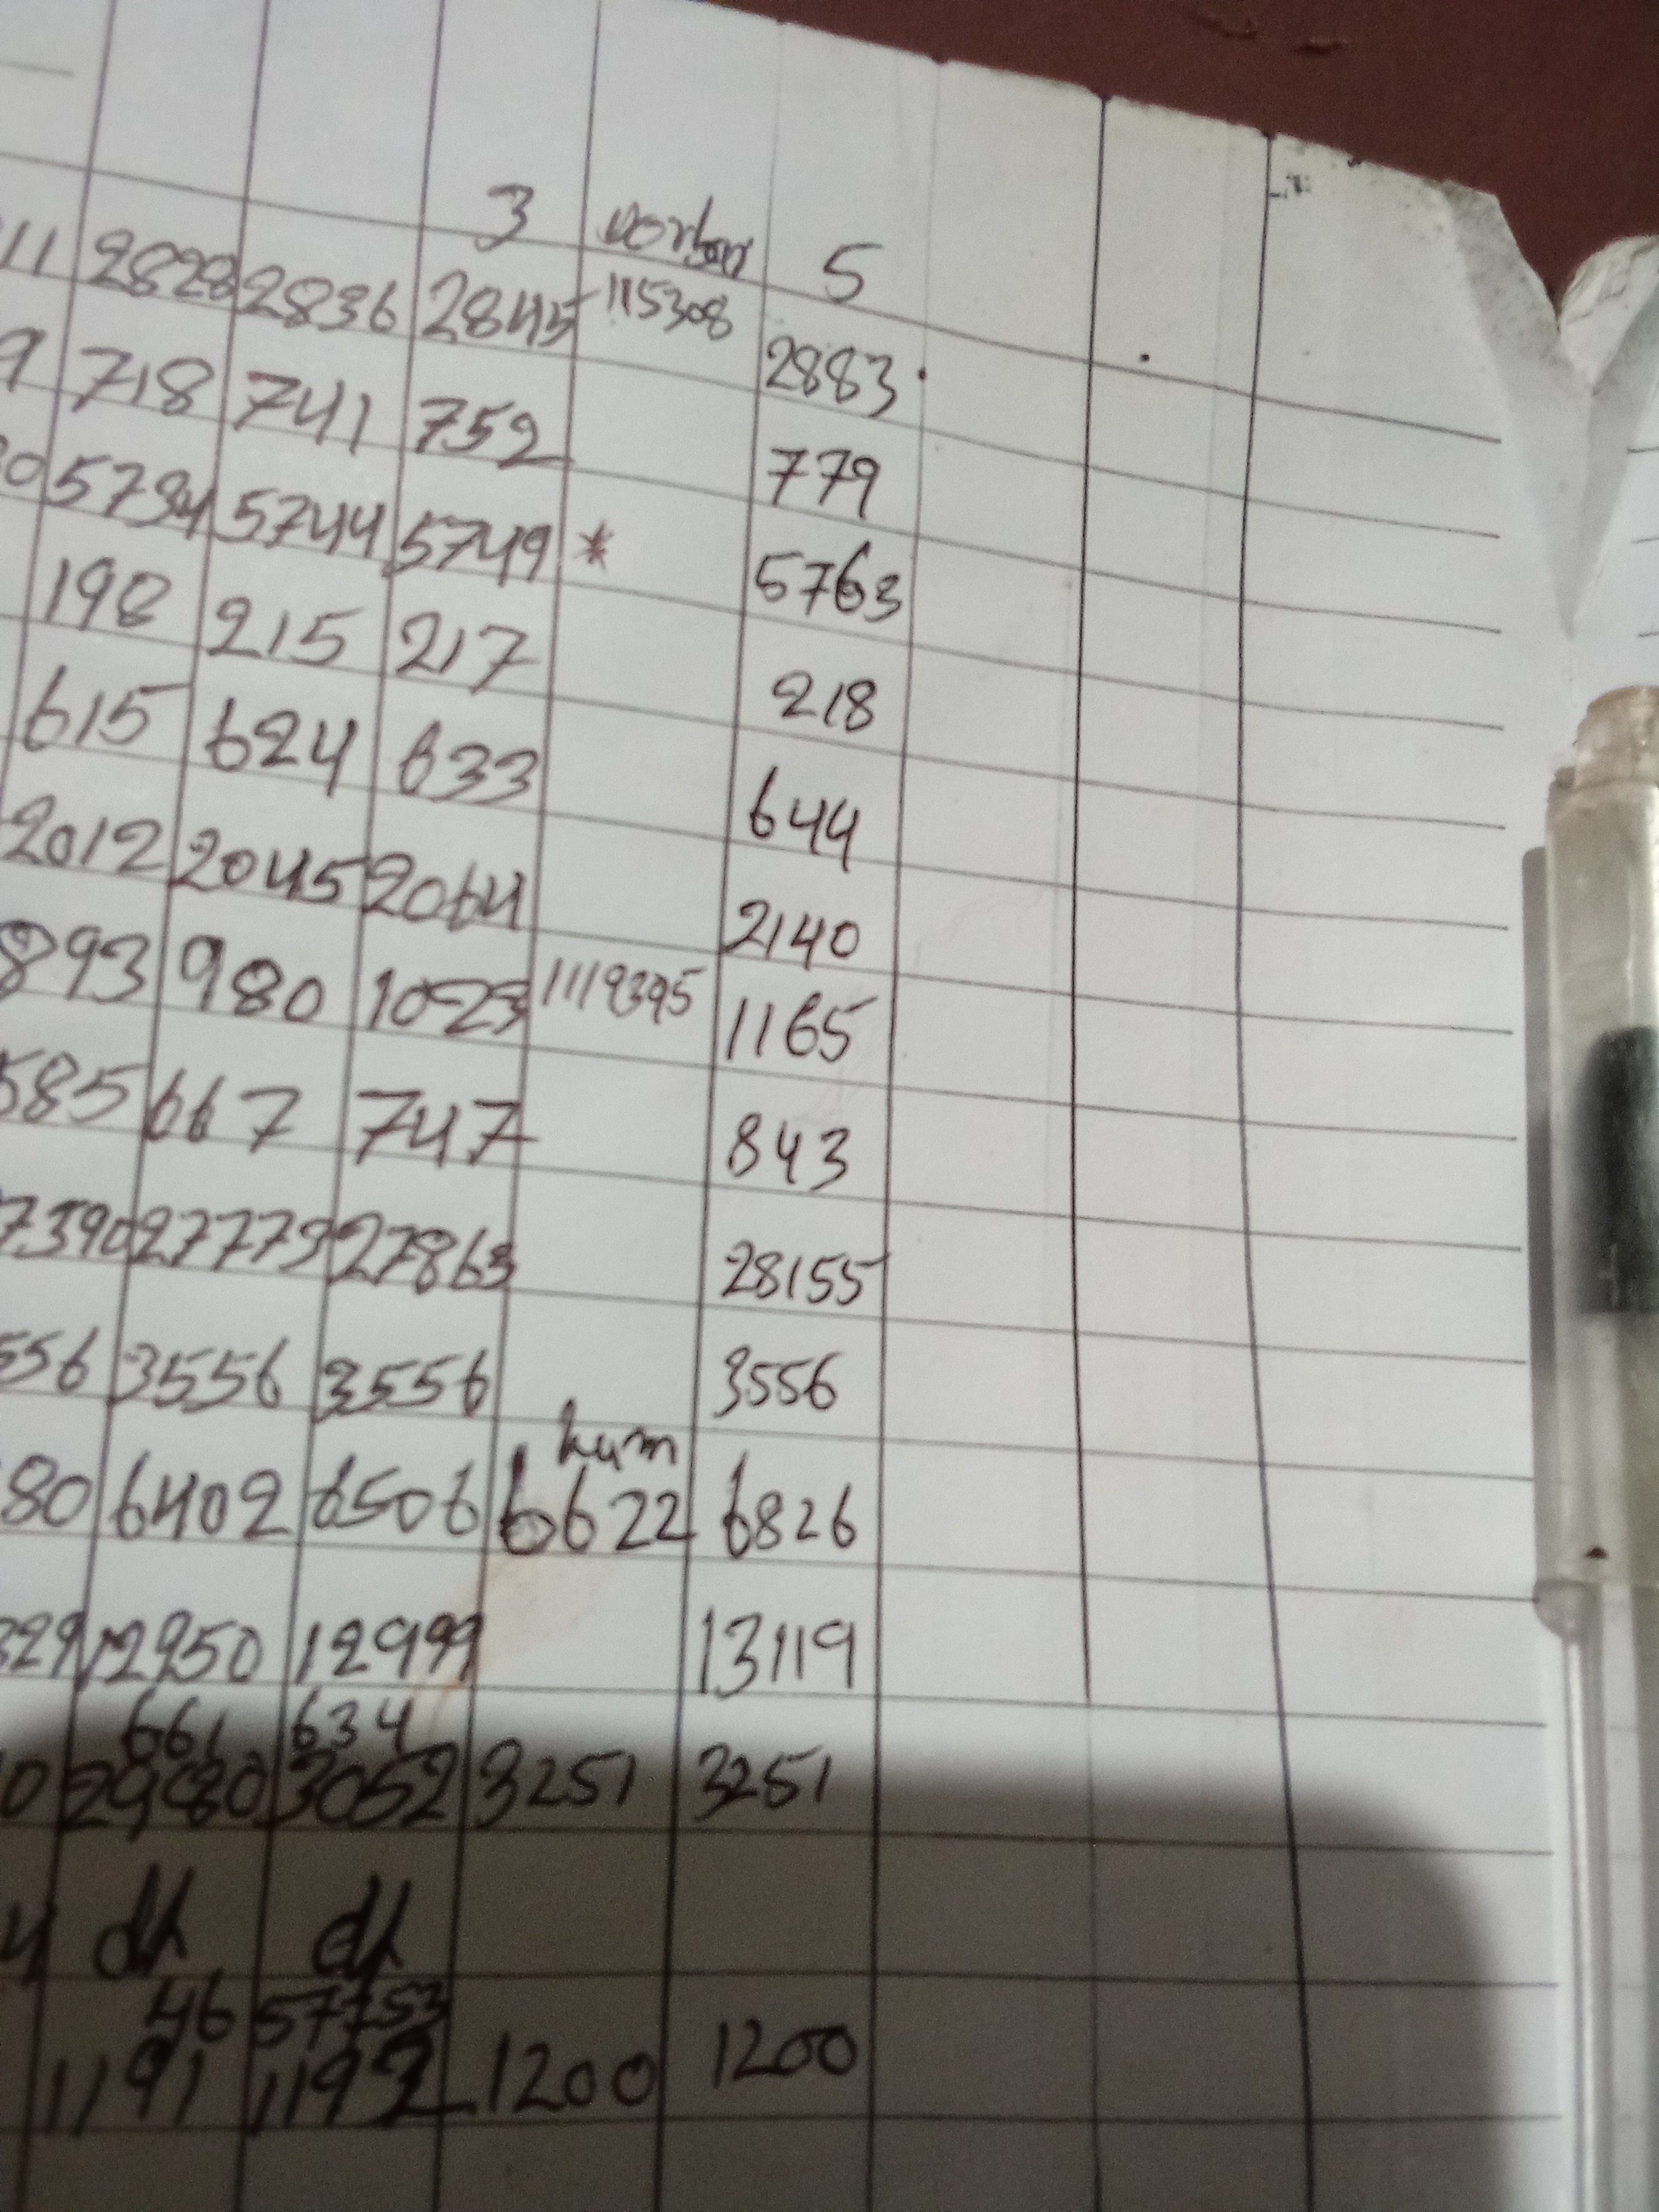 3 5
11 2828 2836 2845 115308 2883
9 718 741 752 779
5734 5744 5749 * 5763
198 215 217 218
615 624 633 644
2012 2045 2064 2140
893 980 1023 1119395 1165
585 667 747 843
7390 27773 27863 28155
556 3556 3556 3556
hum
80 6402 6506 6622 6826
329 12950 12999 13119
661 634
0 2980 3052 3251 3251
46 57753
1191 1192 1200 1200